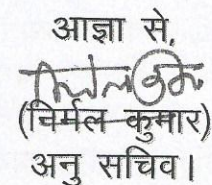 आज्ञा से,
(निर्मल कुमार)
अनु सचिव।